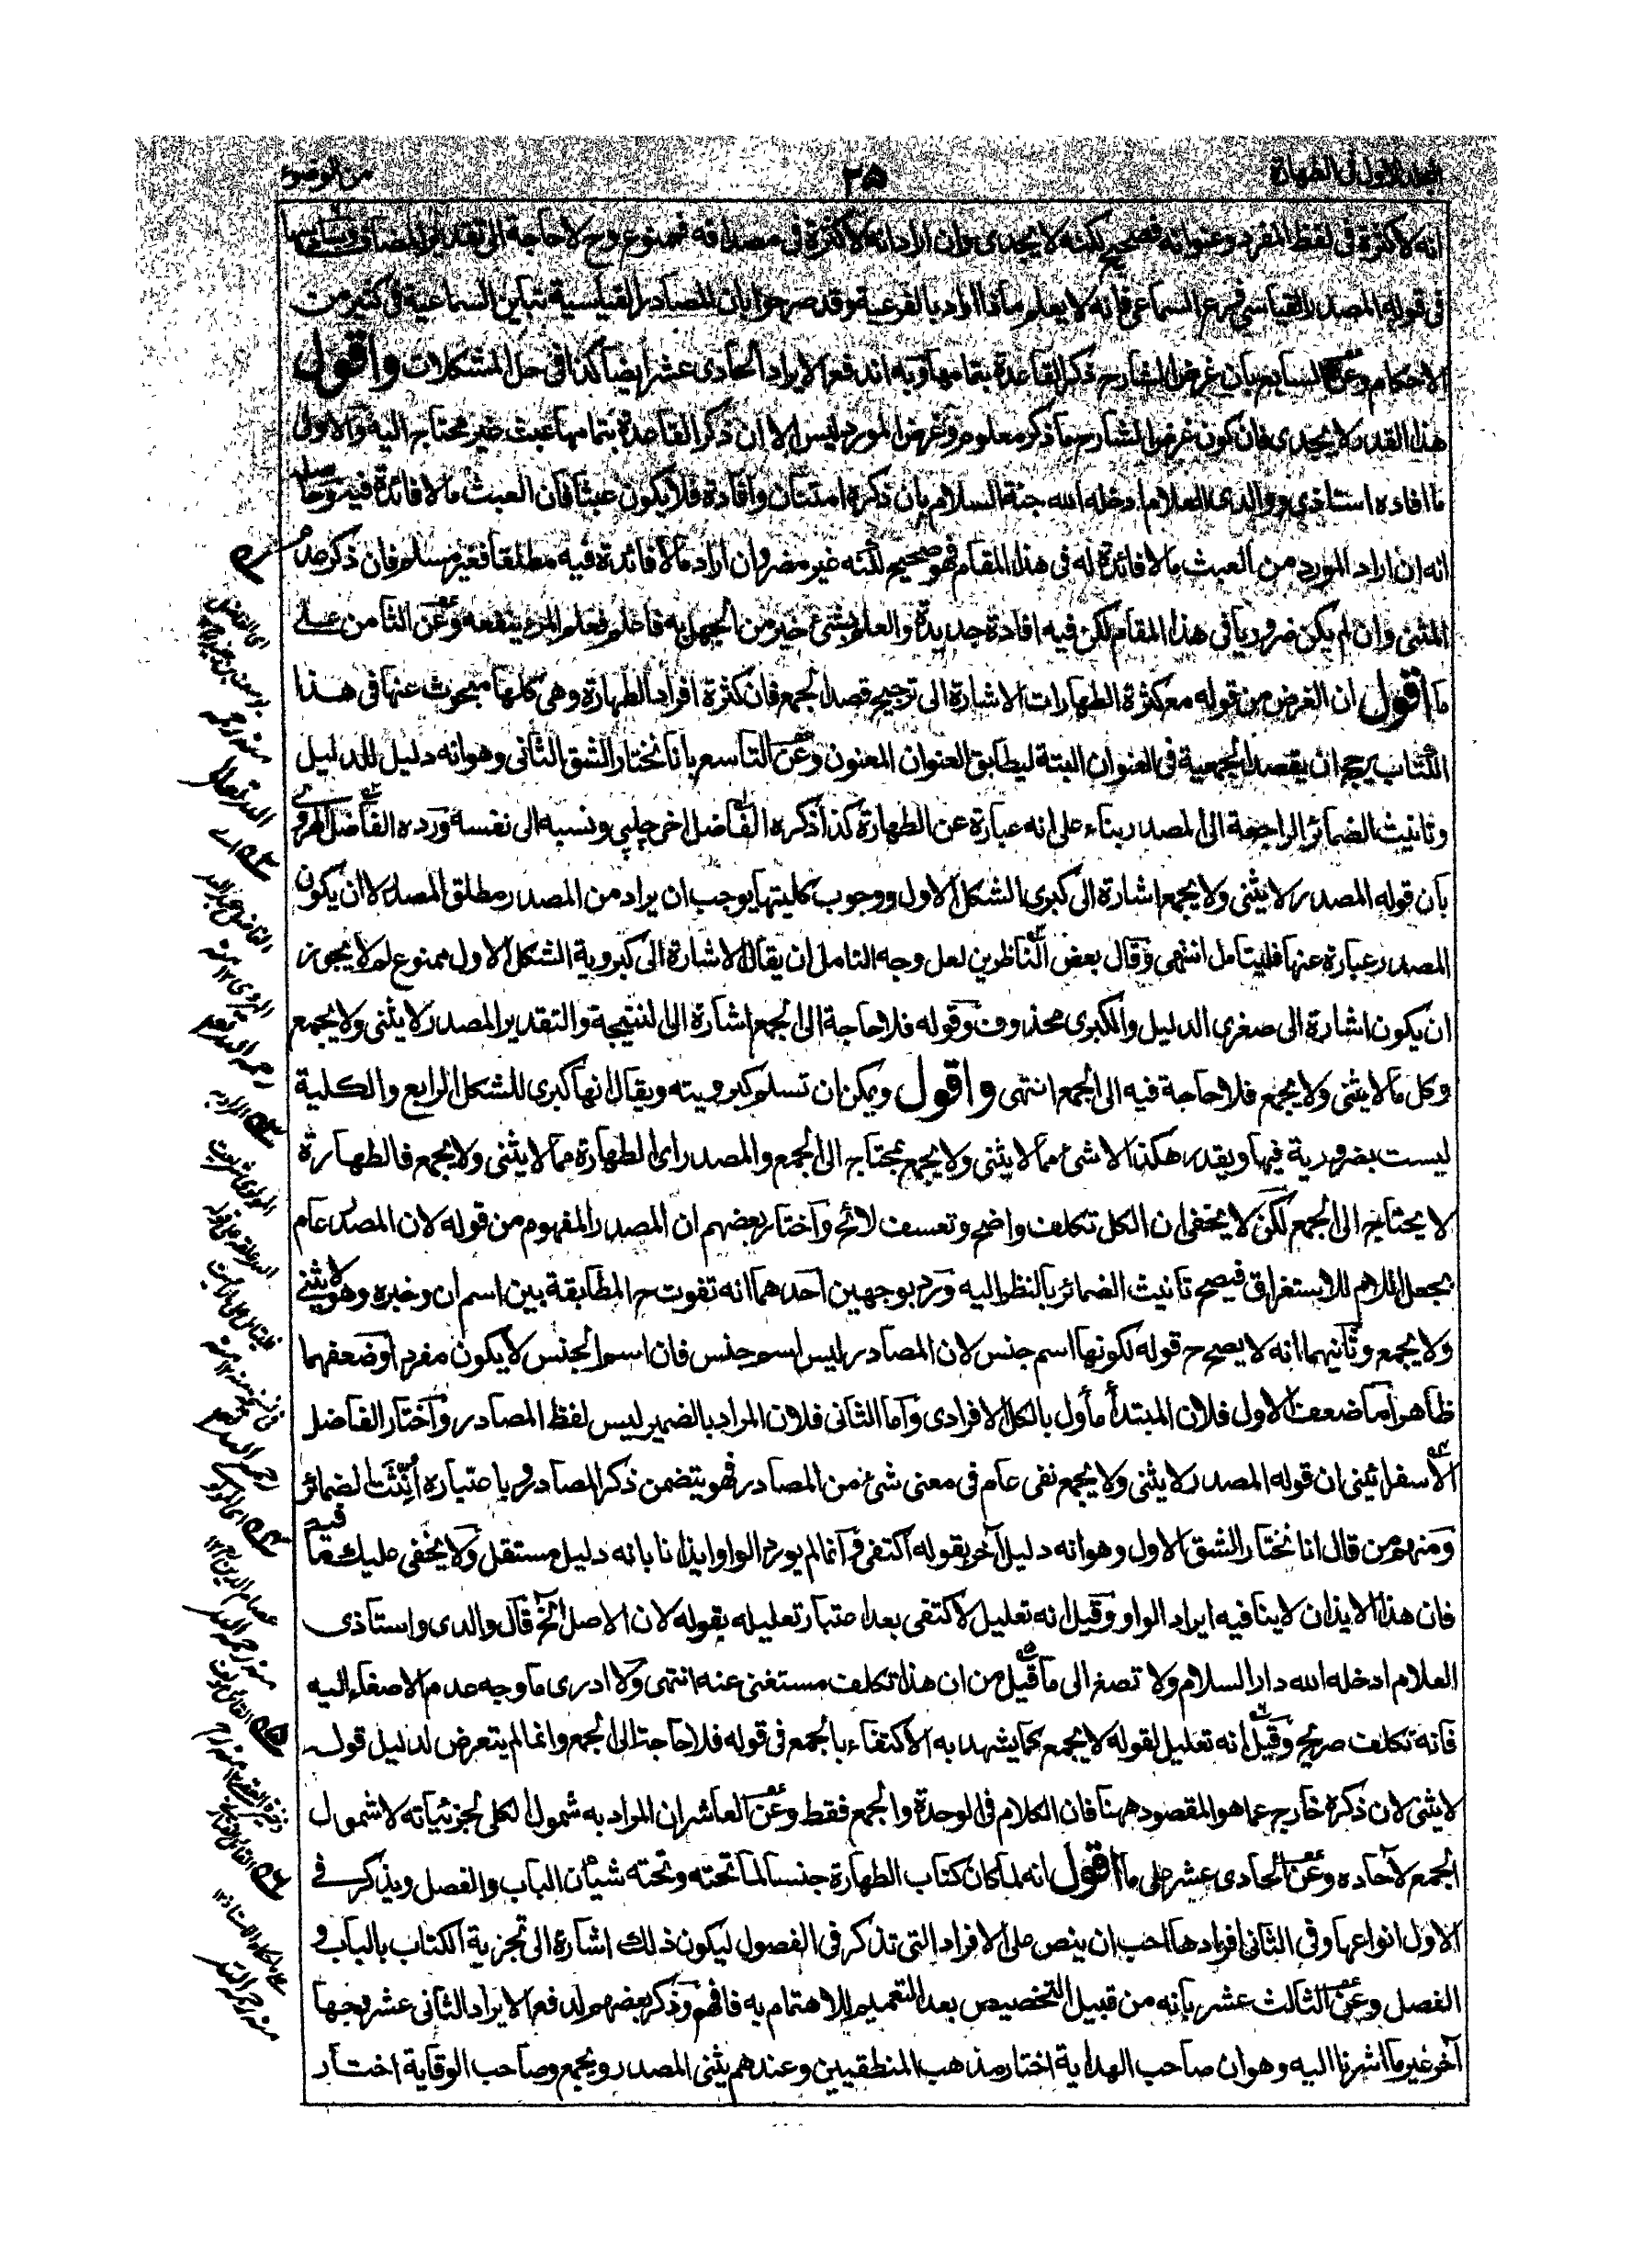 المجلد الاول فى الطهارة
٢٥
من الوضوء
انه لا كثرة فى لفظ المفرد وعنوانه فصحيح لكنه لا يجدى وان اراد انه لا كثرة فى مصداقه فممنوع وح لا حاجة الى تقدير المضاف
فى قوله المصدر القياسى فرع السماعى فانه لا يعلم ماذا اراد بالفرعية وقد صرحوا بان المصادر القياسية تباين السماعية فى كثير من
الاحكام وعن السابع بان غرض الشارح ذكر القاعدة بتمامها وبه اندفع الايراد الحادى عشر ايضا كذا فى حل المشكلات واقول
هذا القدر لا يجدى فان كون غرض الشارح ما ذكر معلوم وغرض المورد ليس الا ان ذكر القاعدة بتمامها عبث غير محتاج اليه والاول
ما افاده استاذى ووالدى العلام ادخله الله جنة السلام بان ذكره امتنان وافادة فلا يكون عبثا فان العبث ما لا فائدة فيه وحاصله
انه ان اراد المورد من العبث ما لا فائدة له فى هذا المقام فهو صحيح لكنه غير مضر وان اراد ما لا فائدة فيه مطلقا فغير مسلم فان ذكر عدم
المثنى وان لم يكن ضروريا فى هذا المقام لكن فيه افادة جديدة والعلم بشئ خير من الجهل به فاعلم فعلم المرء ينفعه وعن الثامن على
ما اقول ان الغرض من قوله مع كثرة الطهارات الاشارة الى ترجيح قصد الجمع فان كثرة افراد الطهارة وهى كلها مبحوث عنها فى هذا
الكتاب يرجح ان يقصد الجمعية فى العنوان البتة ليطابق العنوان المعنون وعن التاسع بانا نختار الشق الثانى وهو انه دليل للدليل
وتانيث الضمائر الراجعة الى المصدر بناء على انه عبارة عن الطهارة كذا ذكره الفاضل اخى چلپى ونسبه الى نفسه ورده الفاضل الهروى
بان قوله المصدر لا يثنى ولا يجمع اشارة الى كبرى الشكل الاول ووجوب كليتها يوجب ان يراد من المصدر مطلق المصدر لا ان يكون
المصدر عبارة عنها فليتامل انتهى وقال بعض الناظرين لعل وجه التامل ان يقال الاشارة الى كبروية الشكل الاول ممنوع لم لا يجوز
ان يكون اشارة الى صغرى الدليل والكبرى محذوف وقوله فلا حاجة الى الجمع اشارة الى النتيجة والتقدير المصدر لا يثنى ولا يجمع
وكل ما لا يثنى ولا يجمع فلا حاجة فيه الى الجمع انتهى واقول ويمكن ان تسلم كبرويته ويقال انها كبرى للشكل الرابع والكلية
ليست بضرورية فيها ويقدر هكذا لا شئ مما لا يثنى ولا يجمع بمحتاج الى الجمع والمصدر اى الطهارة مما لا يثنى ولا يجمع فالطهارة
لا يحتاج الى الجمع لكن لا يخفى ان الكل تكلف واضح وتعسف لائح واختار بعضهم ان المصدر المفهوم من قوله لان المصدر عام
بجعل اللام للاستغراق فيصح تانيث الضمائر بالنظر اليه ورد بوجهين احدهما انه تفوت ح المطابقة بين اسم ان وخبره وهو لا يثنى
ولا يجمع وثانيهما انه لا يصح ح قوله لكونها اسم جنس لان المصادر ليس اسم جنس فان اسم الجنس لا يكون مفردا وضعفهما
ظاهر اما ضعف الاول فلان المبتدأ مأول بالكل الافرادى واما الثانى فلان المراد بالضمير ليس لفظ المصادر واختار الفاضل
الاسفرائنى ان قوله المصدر لا يثنى ولا يجمع نفى عام فى معنى شئ من المصادر فهو يتضمن ذكر المصادر وباعتباره أنّثت الضمائر
ومنهم من قال انا نختار الشق الاول وهو انه دليل آخر بقوله اكتفى وانما لم يورد الواو ايذانا بانه دليل مستقل ولا يخفى عليك ما فيه
فان هذا الايذان لا ينافيه ايراد الواو وقيل انه تعليل لاكتفى بعد اعتبار تعليله بقوله لان الاصل الخ قال والدى واستاذى
العلام ادخله الله دار السلام ولا تصغ الى ما قيل من ان هذا تكلف مستغنى عنه انتهى ولا ادرى ما وجه عدم الاصغاء اليه
فانه تكلف صريح وقيل انه تعليل لقوله لا يجمع كما يشهد به الاكتفاء بالجمع فى قوله فلا حاجة الى الجمع وانما لم يتعرض لدليل قوله
لا يثنى لان ذكره خارج عما هو المقصود ههنا فان الكلام فى الوحدة والجمع فقط وعن العاشر ان المراد به شمول الكلى لجزئياته لا شمول
الجمع لآحاده وعن الحادى عشر على ما اقول انه لما كان كتاب الطهارة جنسا لما تحته وتحته شيئان الباب والفصل ويذكر فى
الاول انواعها وفى الثانى افرادها احب ان ينص على الافراد التى تذكر فى الفصول ليكون ذلك اشارة الى تجزية الكتاب بالباب و
الفصل وعن الثالث عشر بانه من قبيل التخصيص بعد التعميم للاهتمام به فافهم وذكر بعضهم لدفع الايراد الثانى عشر وجها
آخر غير ما اشرنا اليه وهو ان صاحب الهداية اختار مذهب المنطقيين وعندهم يثنى المصدر ويجمع وصاحب الوقاية اختار